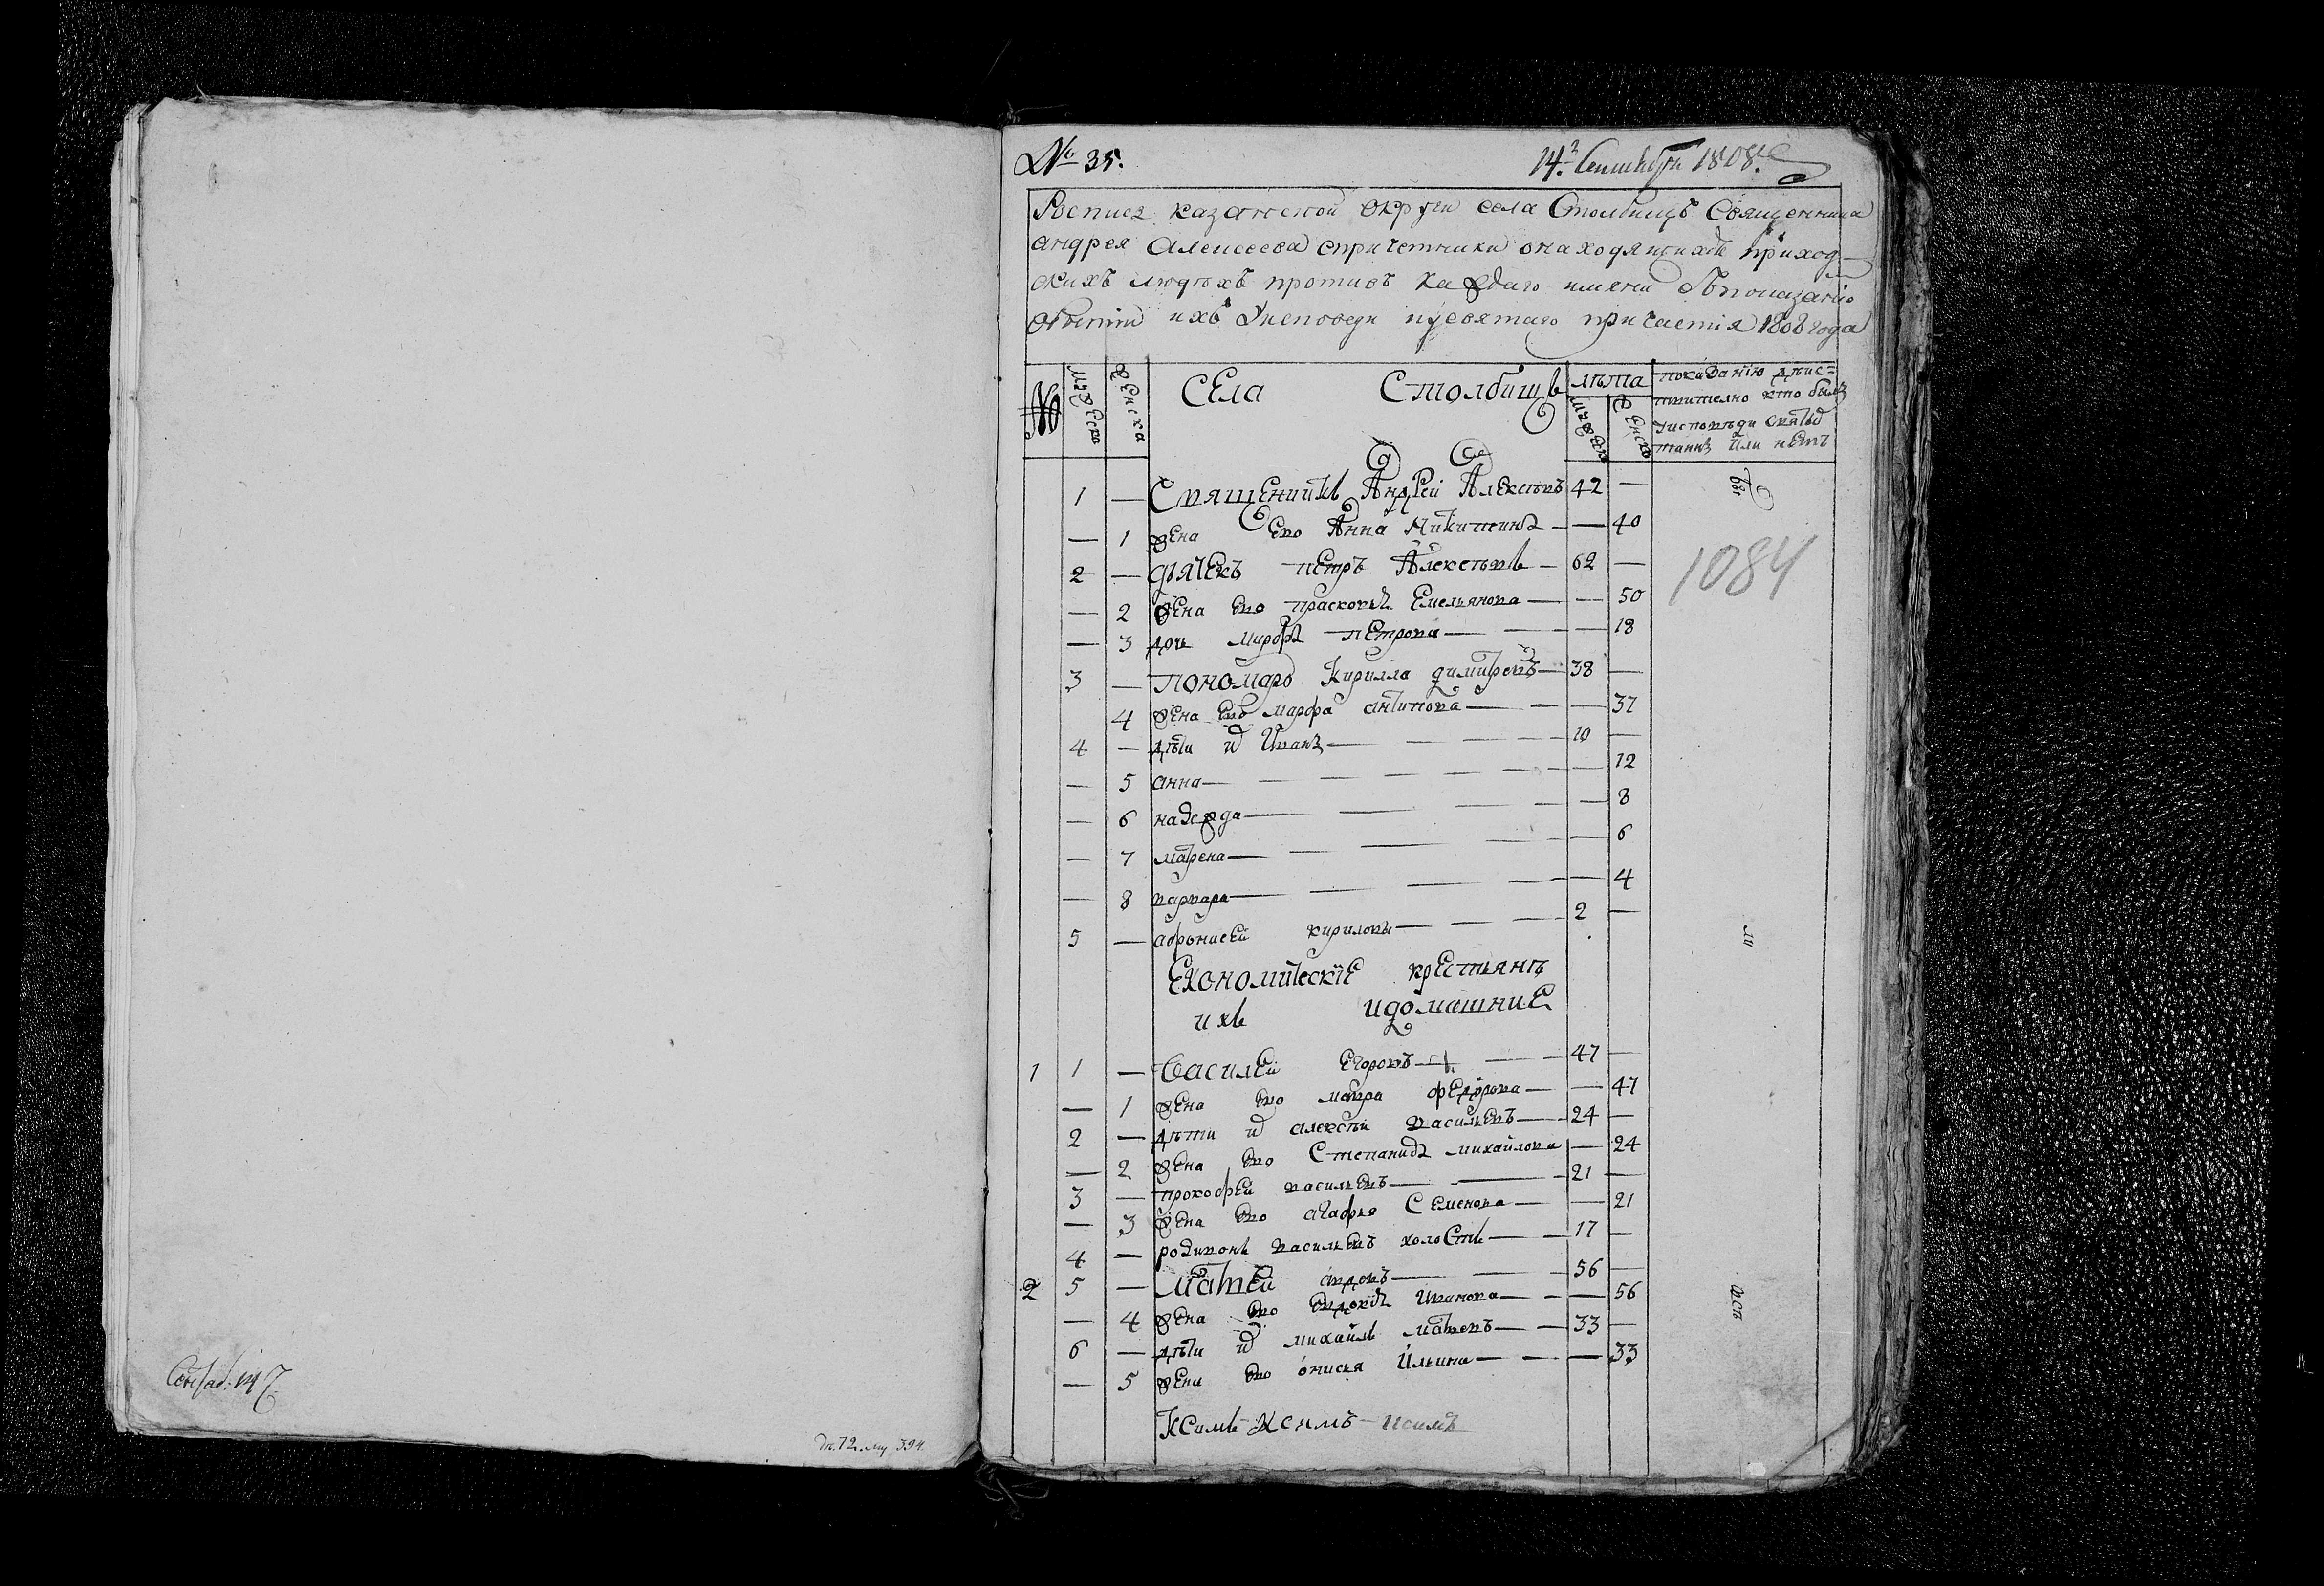 № 35.
14. Сентября 1808.
Роспись казанской округи села Столбищъ Священника
андрея Алексеева спричетники онаходящихся приход
скихъ людѣхъ противъ каждаго имяни Спопоказаніо
обытіи ихъ Уисповеди иусвятаго причастія 1808 года
№ мужеска женска СЕла Столбищъ лѣта мужеск женск
покаЗанїю дѣис=
твително кто былъ
уисповѣди святы
таинъ Или нѣтъ
1 — СвящЕнникъ Андрей Алексѣевъ 42 — бы
— 1 жЕна Ево Анна Никитина — 40
2 — дьячЕкъ пЕтръ Алексѣевъ 62 —
1084
— 2 жЕна Ево прасковья Емельянова — 50
— 3 дочь марфа пЕтрова — 18
3 — пономарь Кирилла димитревъ 38 —
4 жЕна Ево марфа антипова — 37
4 — дѣти и Иванъ 10 —
— 5 анна — 12
— 6 надежда — 8
— 7 матрена — 6
— 8 варвара — 4
5 — афонасЕй кириловы 2 — ли
Економическїе крЕстьянѣ
ихъ идомашниЕ
1 1 — ВасилЕй Егоровъ 47 —
— 1 жЕна Ево мавра фЕдорова — 47
2 — дѣти и алексѣй васильЕвъ 24 —
— 2 жЕна Ево Степанида михайлова — 24
3 — прокофЕй васильЕвъ 21 —
— 3 жЕна Ево агафья Семенова — 21
4 — родивонъ васильЕвъ холоСтъ 17 —
2 5 — матвЕй авдевъ 56 — всѣ
— 4 жЕна Ево Евдокия Иванова — 56
6 — дѣти и михайлъ матвевъ 33 —
— 5 жЕна Ево онисья Ильина — 33
Ксимъ Ксимъ Ксимъ
Оп. 72. лщ 394.